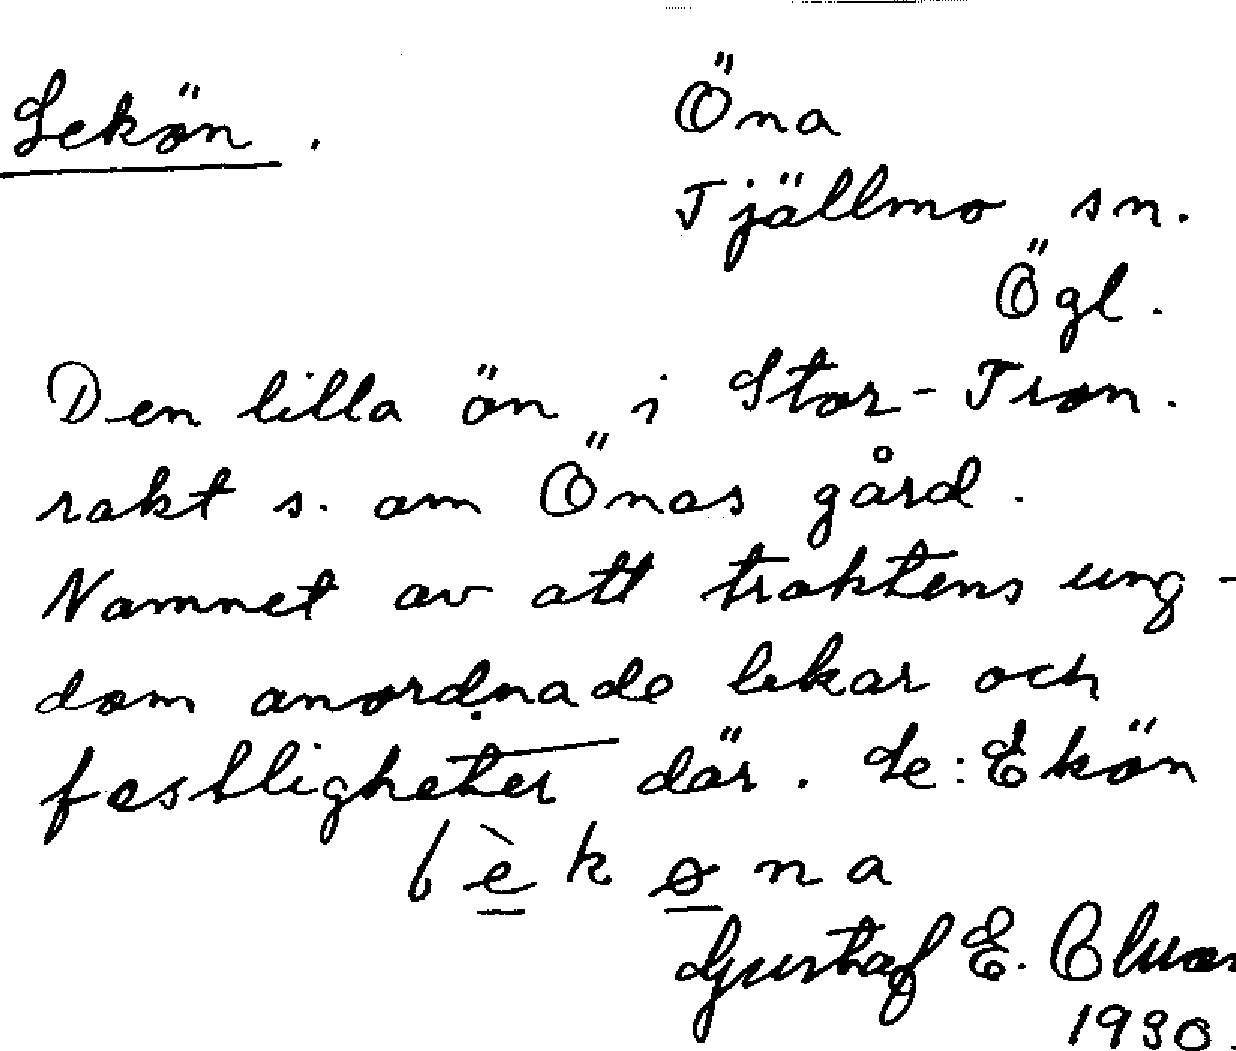 Lekön.
Öna
Tjällmo sn.
Ögl.
Den lilla ön i Stor-Tron.
rakt s. om Önas gård.
Namnet av att traktens ung-
dom anordnade lekar och
festligheter där. Se: Ekön
lè k ø n a
Gustaf E.
1930.